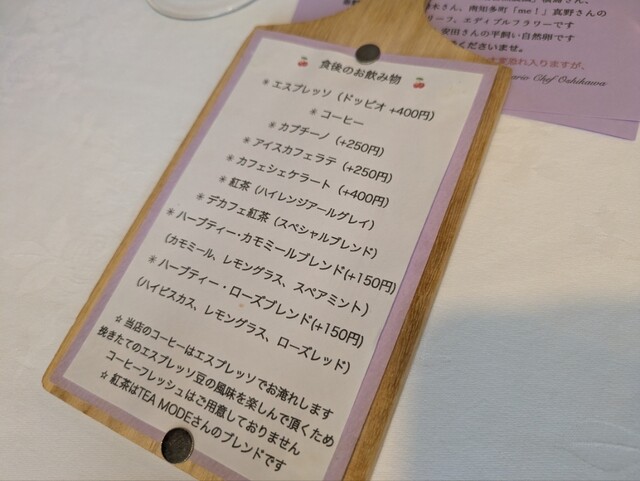 食後のお飲み物
＊ エスプレッソ（ドッピオ +400円）
＊ コーヒー
＊ カプチーノ（+250円）
＊ アイスカフェラテ（+250円）
＊ カフェシェケラート（+400円）
＊ 紅茶（ハイレンジアールグレイ）
＊ デカフェ紅茶（スペシャルブレンド）
＊ ハーブティー・カモミールブレンド(+150円)
（カモミール、レモングラス、スペアミント）
＊ ハーブティー・ローズブレンド(+150円)
（ハイビスカス、レモングラス、ローズレッド）
☆ 当店のコーヒーはエスプレッソでお淹れします
挽きたてのエスプレッソ豆の風味を楽しんで頂くため
コーヒーフレッシュはご用意しておりません
☆ 紅茶はTEA MODEさんのブレンドです
さん、南知多町「me！」真野さんの
リーフ、エディブルフラワーです
安田さんの平飼い自然卵です
くださいませ。
れ入りますが、
Chef Oshikawa